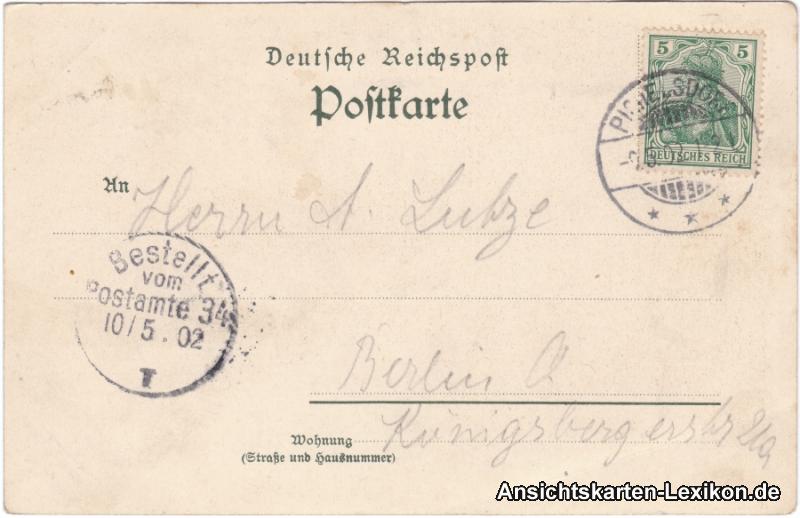 Deutsche Reichspost
Postkarte
5 5
DEUTSCHES REICH
PICHELSDORF
An Herrn A. Lutze
Bestellt
vom
Postamte 34
10/5.02
T
Berlin O
Königsbergerstr
Wohnung
(Straße und Hausnummer)
Ansichtskarten-Lexikon.de